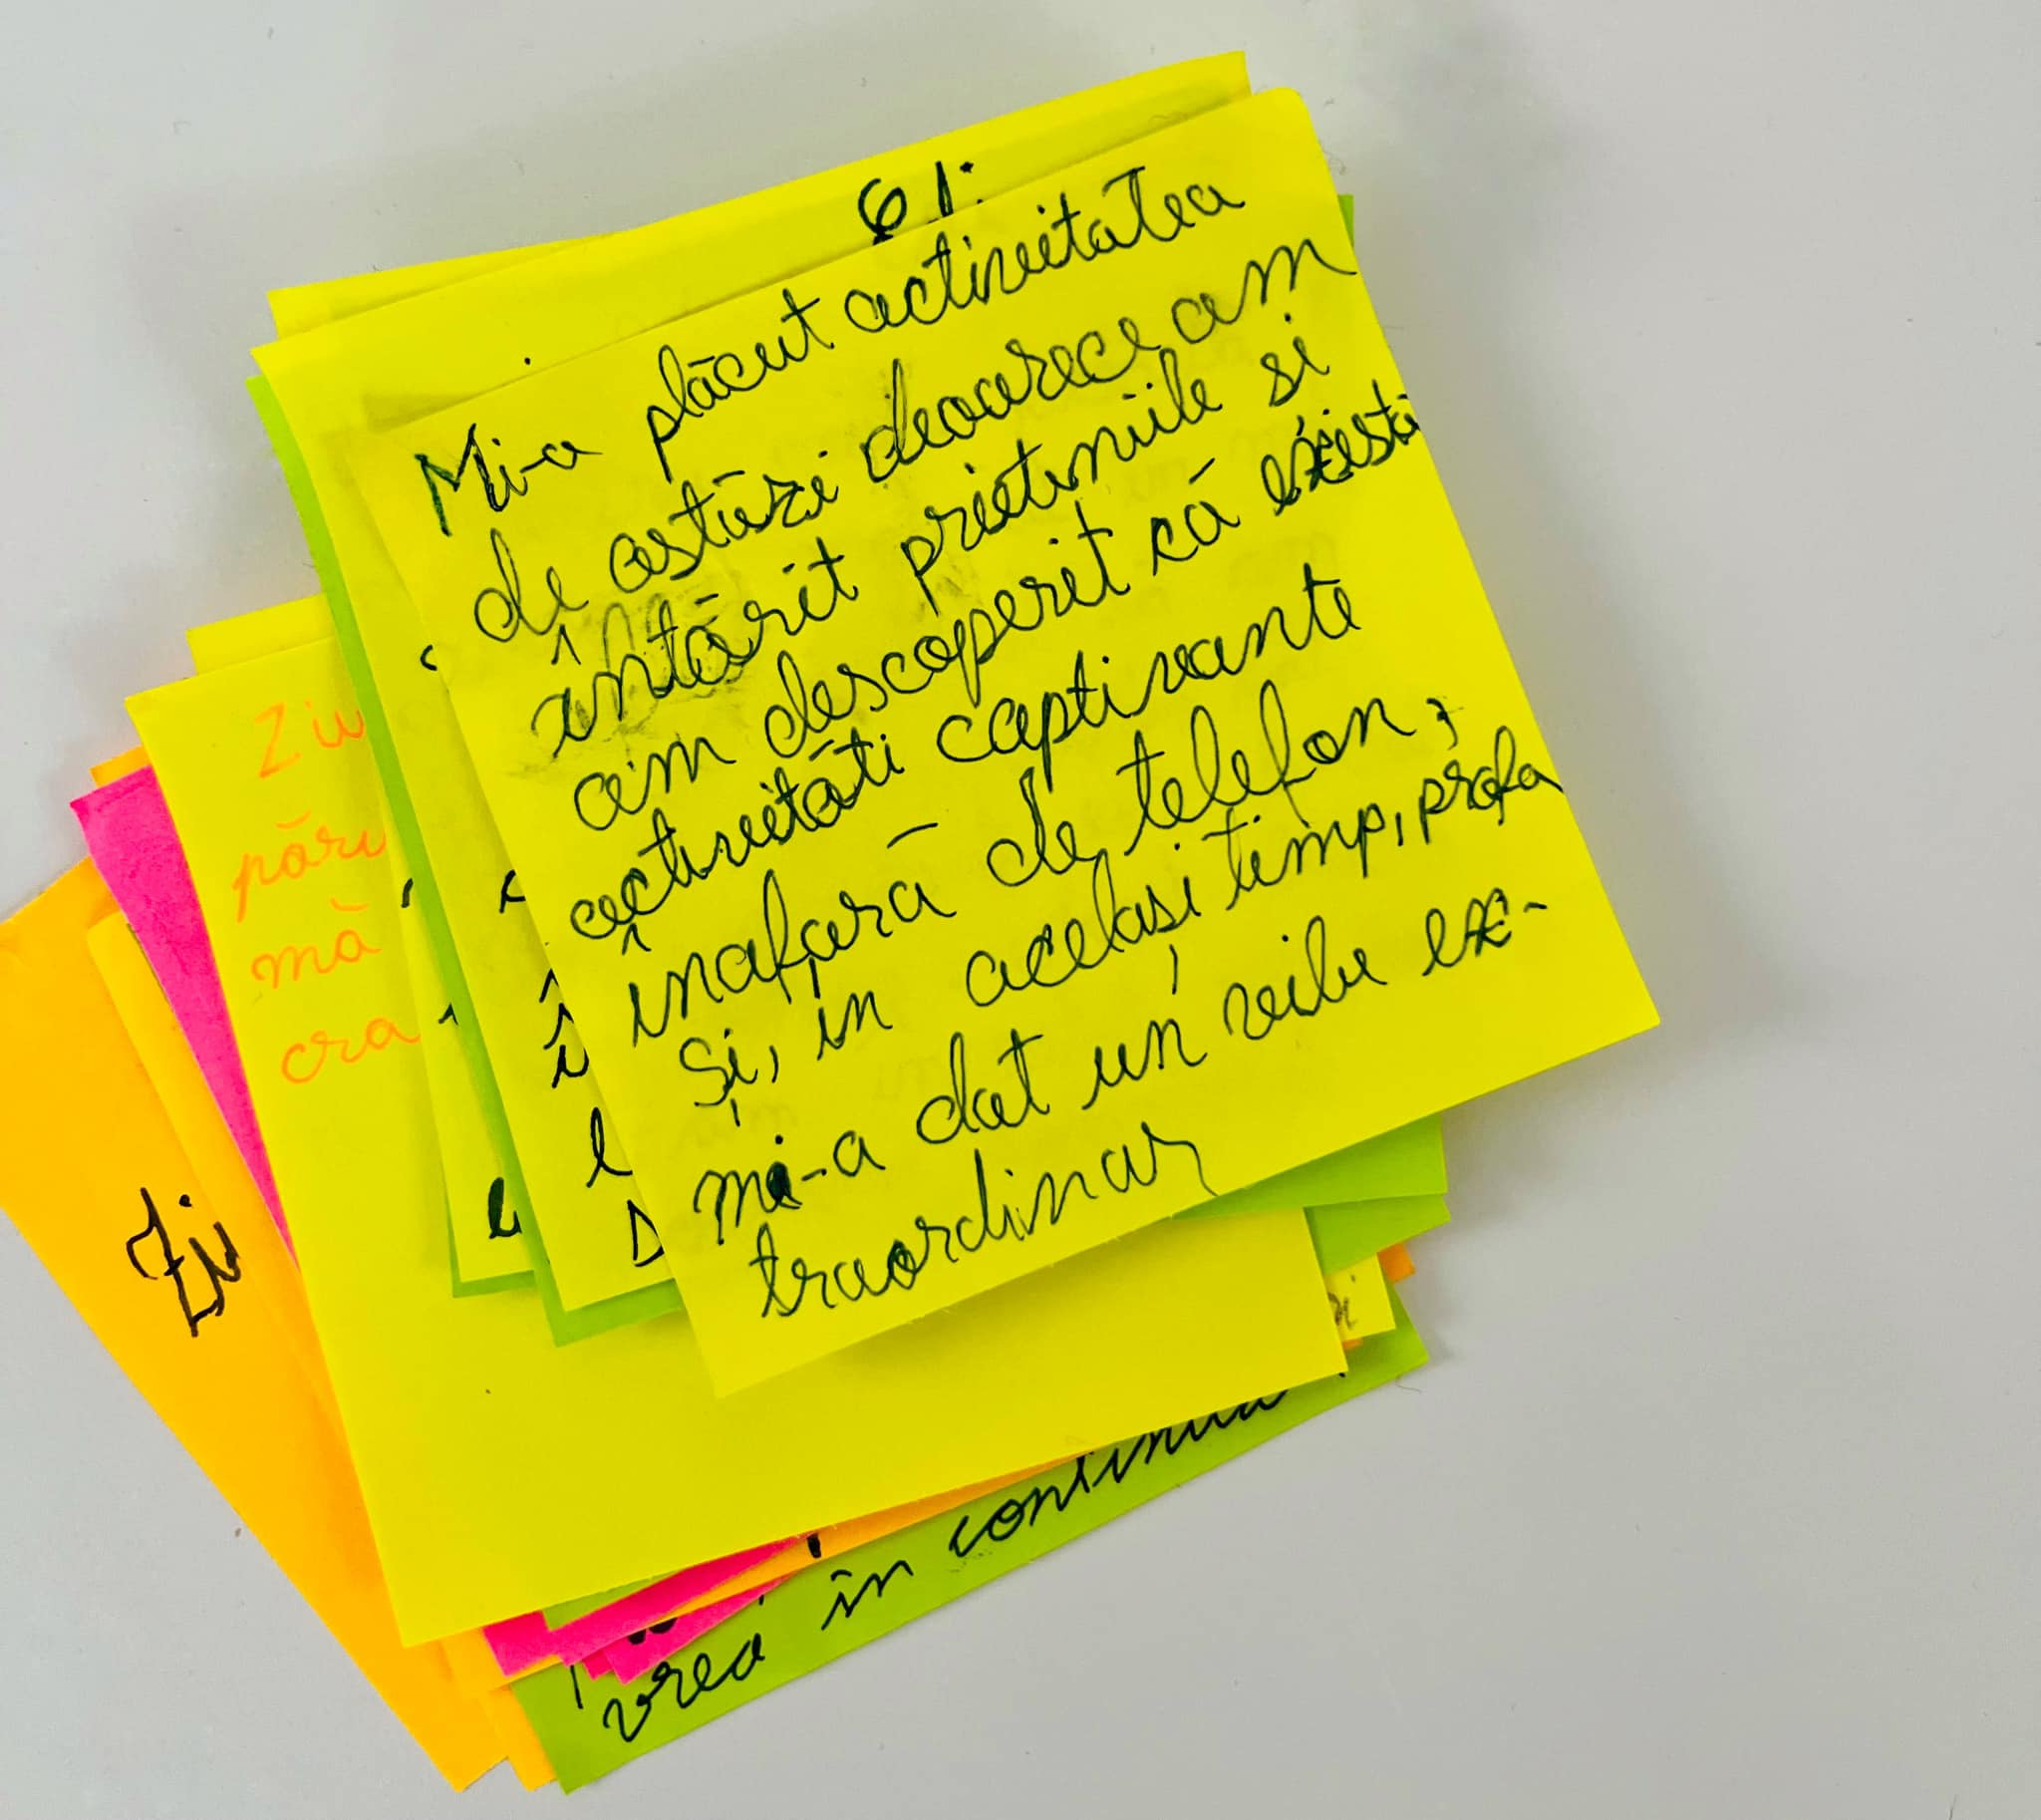 61:
Mi-a plăcut activitatea
de astăzi deoarece am
întărit prieteniile si
am descoperit că există
activităti captivante
înafară de telefon,
Și, in același timp, profa
mi-a dat un vibe ex-
traordinar
Ziu
pări
mă
cra
Zi
vrea în continua